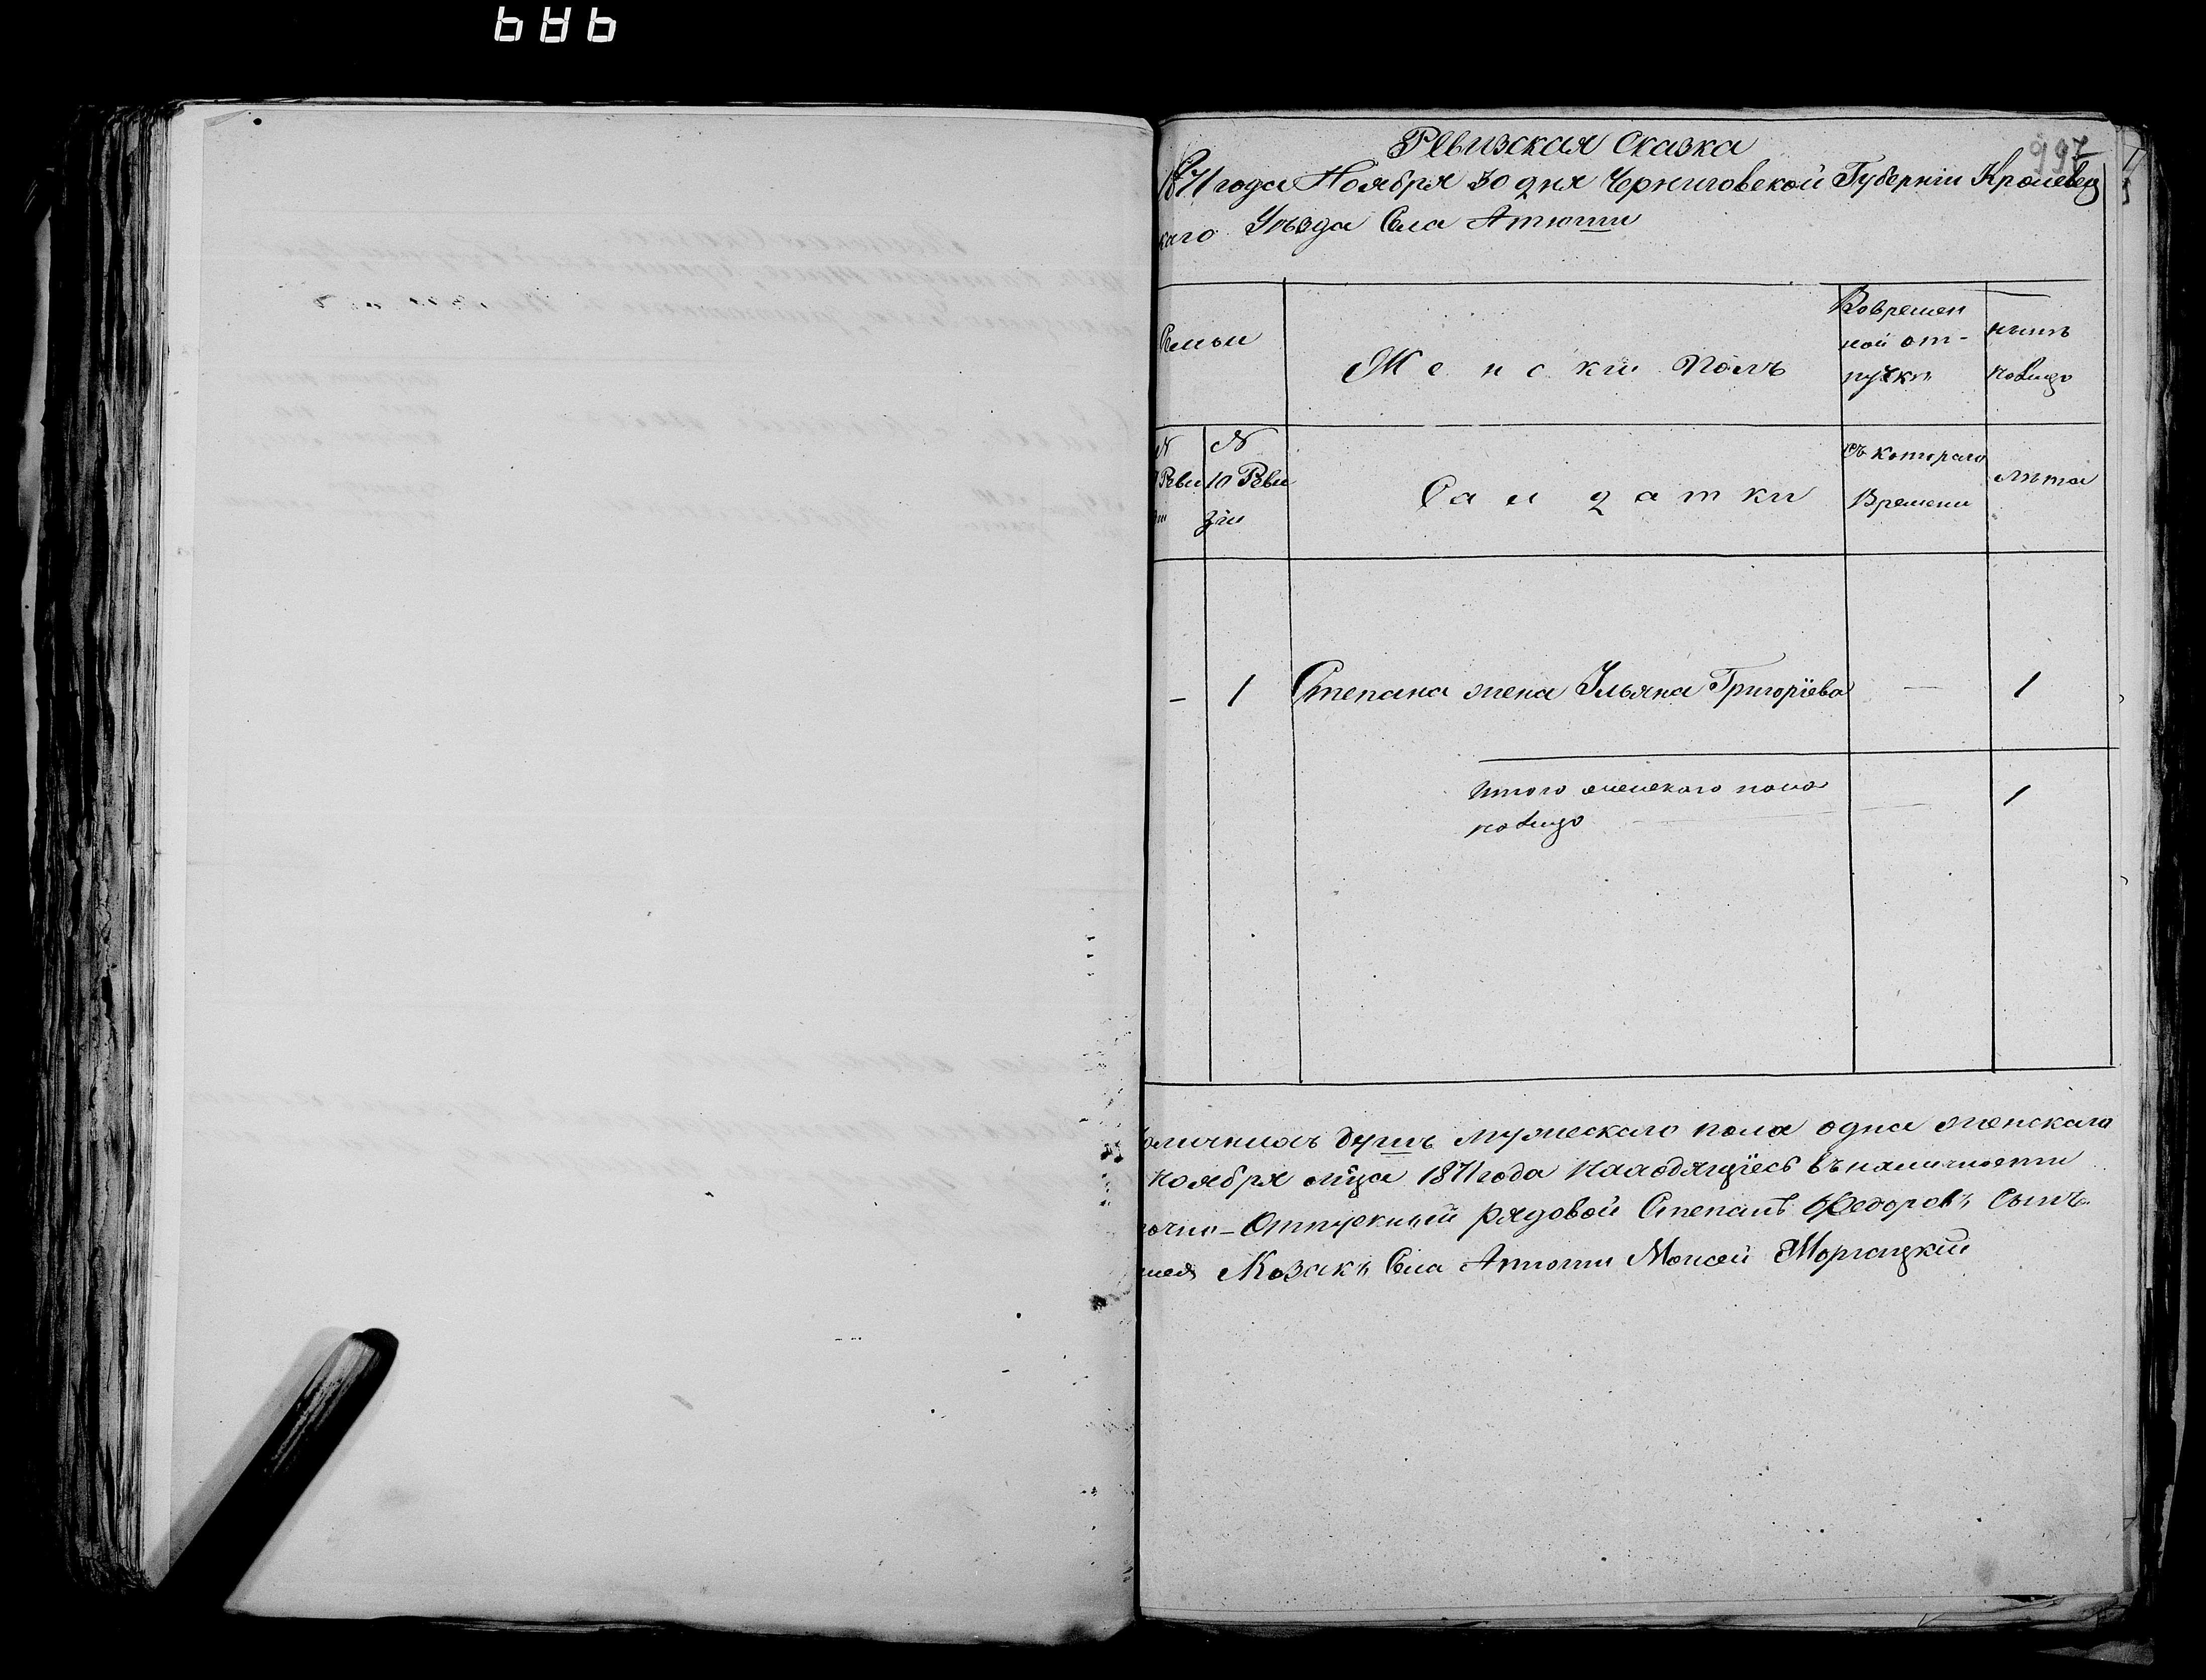 989
997
Ревизская Сказка
1871 года Ноября 30 дня Черниговской Губерніи Кролевец
каго Уѣзда Села Атюши
Семьи
Женски Полъ
Вовремен
ной от-
лучки
нынѣ
налицо
№ Реви зіи
№ 10 Реви зіи
Салдатки
Съ котораго
Времени
лѣта
– 1 Степана жена Ульяна Григоріева — 1
Итого женскаго пола 1
налицо
душъ мужескаго пола одна женскаго
Ноября мца 1871 года находящіесь въ наличности
Отпускный рядовой Степанъ Федоровъ Сынъ
Козакъ Села Атюши Моисей